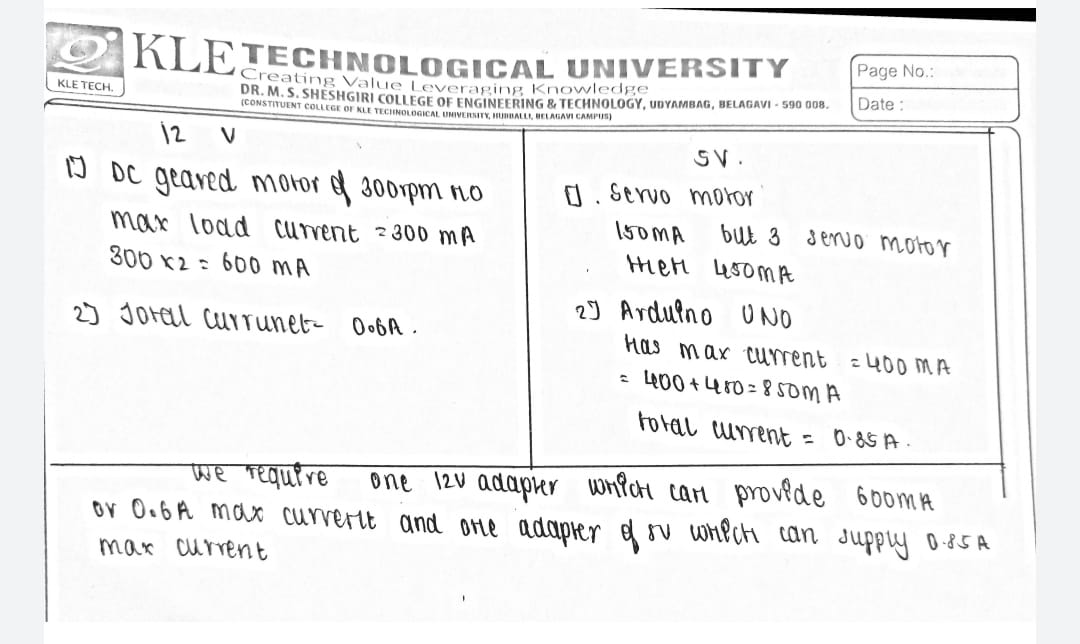 KLE TECHNOLOGICAL UNIVERSITY
Creating Value Leveraging Knowledge
KLE TECH.
DR. M. S. SHESHGIRI COLLEGE OF ENGINEERING & TECHNOLOGY, UDYAMBAG, BELAGAVI - 590 008.
(CONSTITUENT COLLEGE OF KLE TECHNOLOGICAL UNIVERSITY, HUBBALLI, BELAGAVI CAMPUS)
Page No.:
Date :
12 V
1] DC geared motor of 300rpm no
max load current = 300 mA
300 x2 = 600 mA
2] Total Currunet- 0.6A .
5V .
1] . Servo motor
150mA but 3 servo motor
then 450mA
2] Arduino UNO
Has max current = 400 mA
= 400 + 450 = 850mA
total current = 0.85 A .
we require one 12V adapter which can provide 600mA
or 0.6A max current and one adapter of 5V which can supply 0.85A
max current